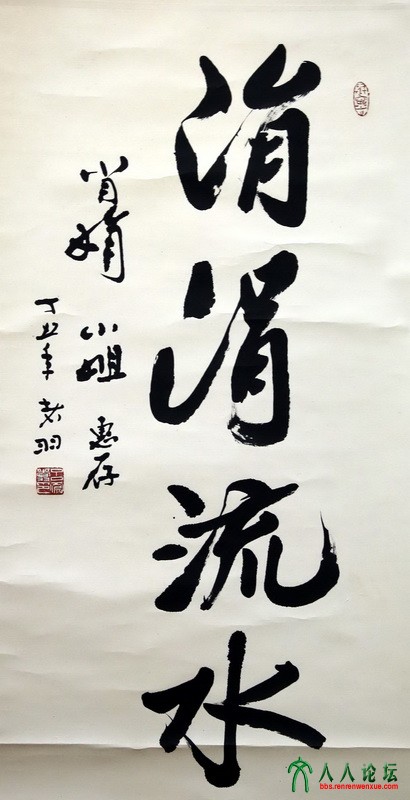 涓涓流水
肖娟 小姐 惠存
丁丑年 老羽
人人论坛
bbs.renrenwenxue.com